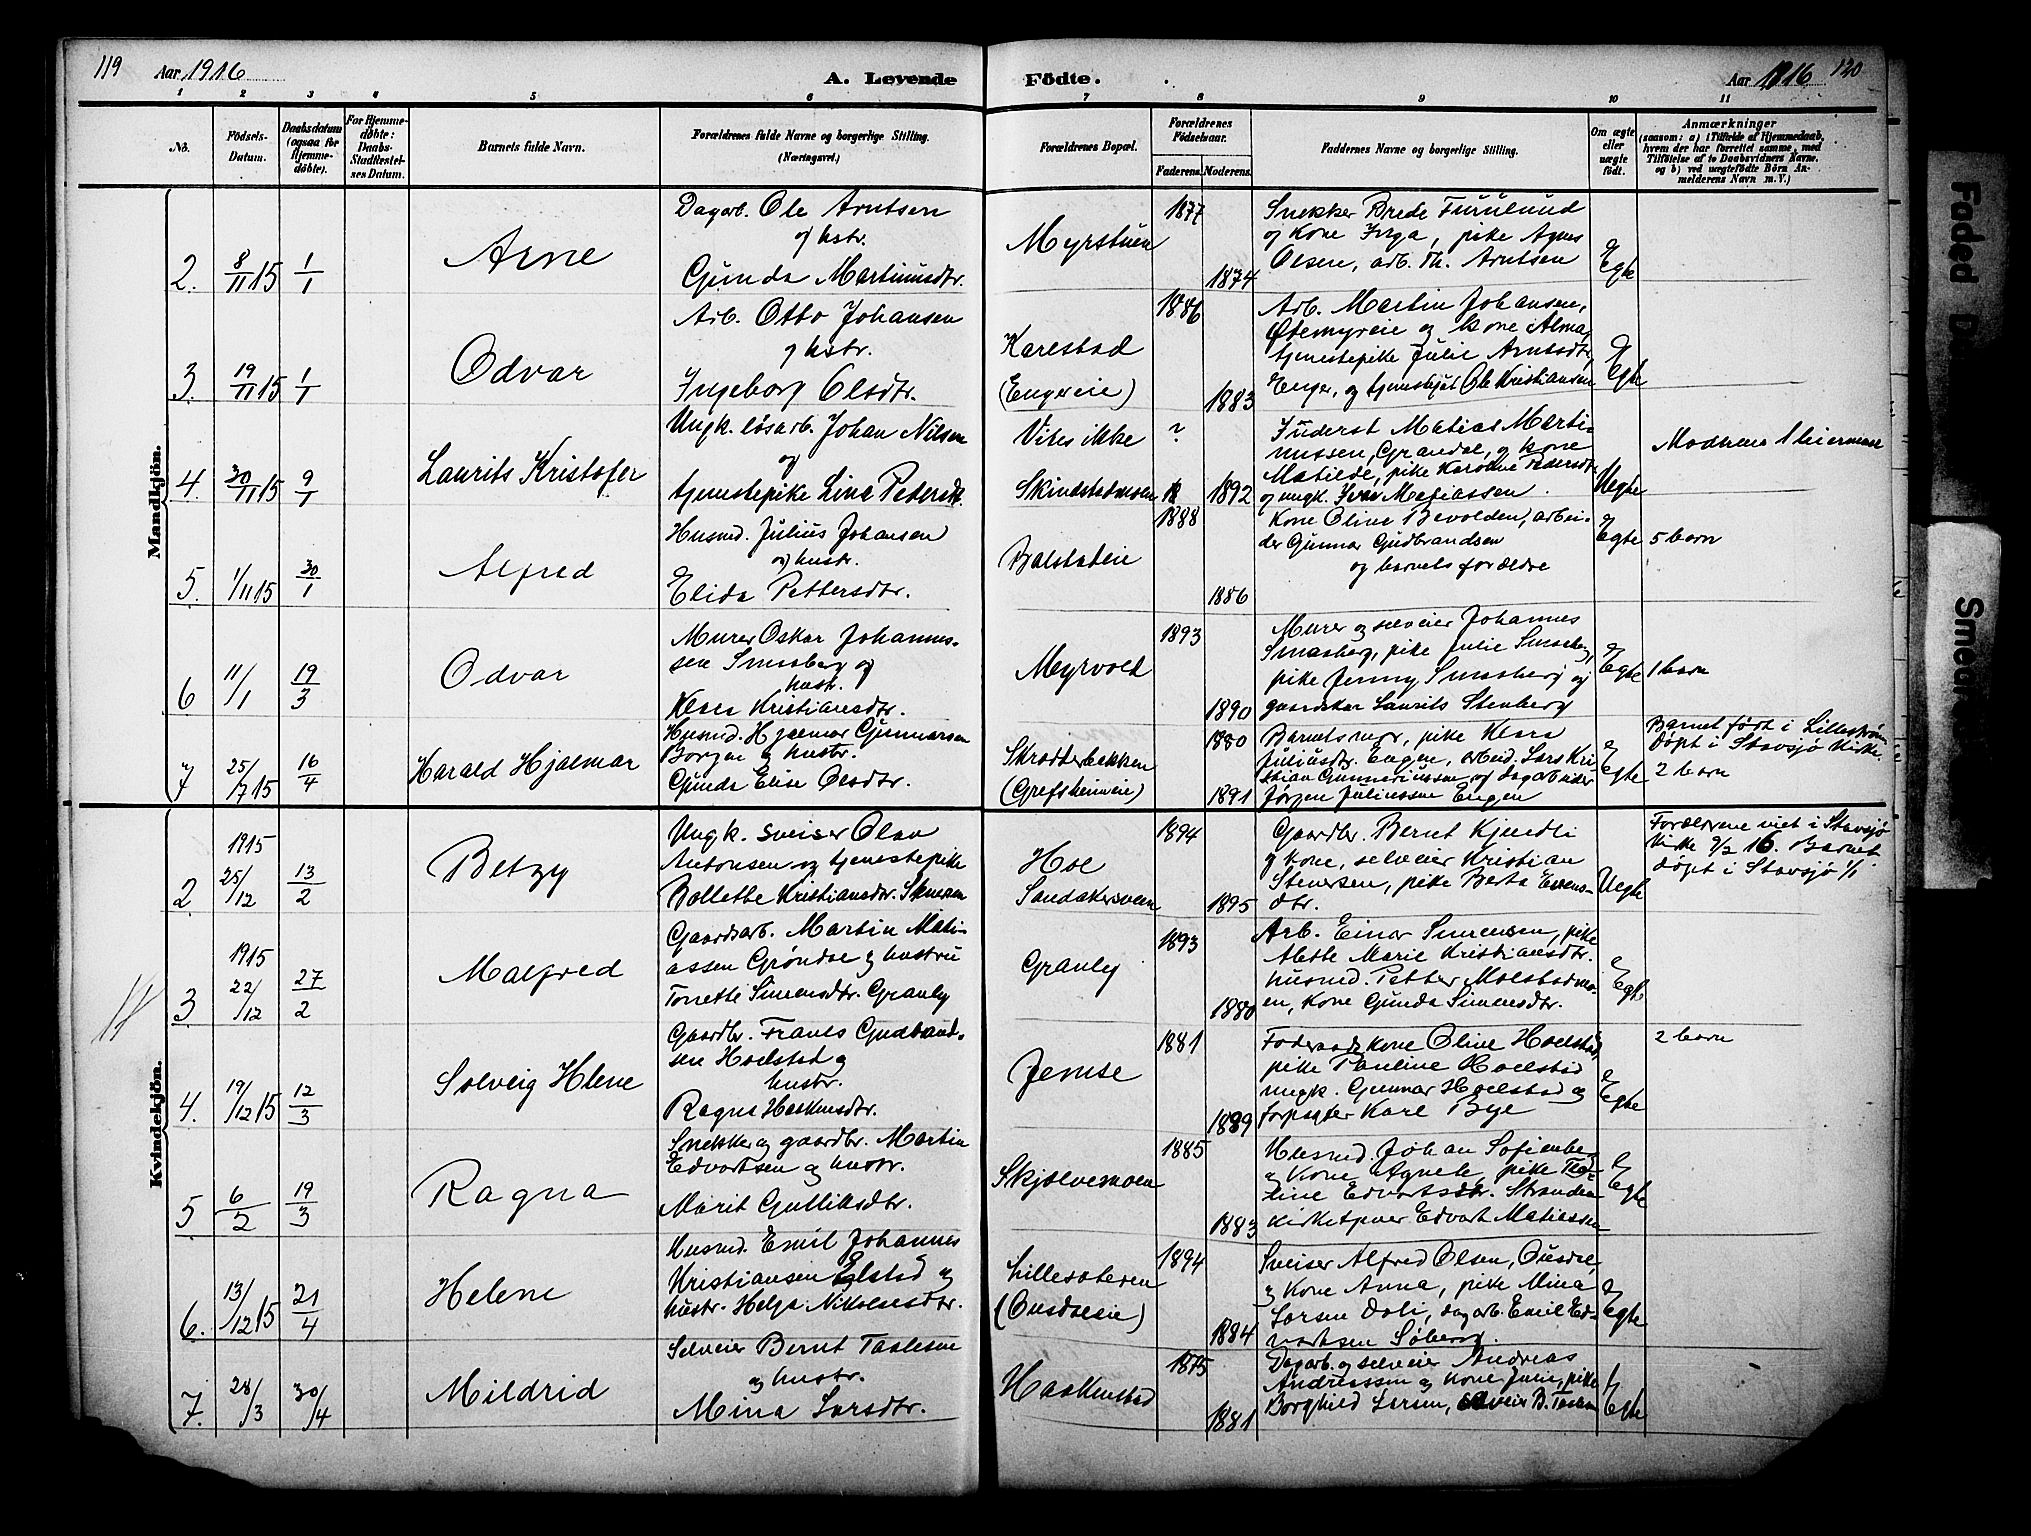 119
Aar 1916
A. Levende
Födte.
Aar 1916
120
1 2 3 4 5 6 7 8 9 10 11
No.
Födsels-
Datum.
Daabsdatum
(ogsaa for
Hjemme-
døbte).
For Hjemme-
døbte:
Daabs-
Stadfæstel-
ses Datum.
Barnets fulde Navn.
Forældrenes fulde Navne og borgerlige Stilling.
(Næringsvei.)
Forældrenes Bopæl.
Forældrenes
Födselsaar.
Faderens. Moderens.
Faddernes Navne og borgerlige Stilling.
Om ægte
eller
uægte
født.
Anmærkninger
(saasom: a) i Tilfælde af Hjemmedaab,
hvem der har forrettet samme, med
Tilføielse af to Daabsvidners Navne,
og b) ved uægtefødte Børn An-
melderens Navn m. V.)
Mandkjön.
2. 8/11 15 1/1
Arne
Dagarb. Ole Arntsen
og hstr.
Gunda Martinusdtr.
Myrstuen
1877
1874
Snekker Brede Furulund
og kone Inga, pike Agnes
Olsen, arb. Th. Arntsen
Egte
3. 19/11 15 1/1
Odvar
Arb. Otto Johansen
og hstr.
Ingeborg Olsdtr.
Karestad
(Engereie)
1886
1883
Arb. Martin Johansen,
og kone Alma,
tjenestepike Julie Arntsdtr
Enger, og Ole Kristiansen
Egte
4. 30/11 15 9/1
Laurits Kristofer
Ungk. løsarb. Johan Nilsen
og
tjenestepike Lina Pedersdtr.
Vites ikke
Skindstadmoen
?
1892
Inderst Matias Marti-
nussen, Grøndal, og kone
Matilde, pike Karoline Pedersdtr
og ungk. Matiassen.
Uegte
Modrens 1 leiermaal
5. 1/11 15 30/1
Alfred
Husmd. Julius Johansen
og hustr.
Elida Pettersdtr.
Balstadeie
1888
1886
Kone Oline Bævolden, arbei-
der Gunnar Gudbrandsen
og barnets forældre
Egte
5 barn
6 11/1 19/3
Odvar
Murer Oskar Johannes-
sen Smesberg og
hustr.
Klara Kristiansdtr.
Myrvold
1893
1890
Murer og selveier Johannes
Smesberg, pike Julie Smesberg,
pike Jenny Smesberg og
gaardskar Laurits Stenberg
Egte
1 barn
7 25/7 15 16/4
Harald Hjalmar
Husmd. Hjalmar Gunnarsen
Borgen og hustr.
Gunda Elise Olsdtr.
Skrædderbakken
(Grefsheimeie)
1880
1891
Barnets mor, pike Klara
Juliusdtr. Engen, arbeid. Lars Kri-
stian Gunnariussen og dagarbeider
Jørgen Juliussen Engen
Egte
Barnet født i Lillestrøm
døpt i Stavsjø kirke.
2 barn
Kvindekjön.
2 1915 25/12 13/2
Betzy
Ungk. sveiser Olav
Antonsen og tjenestepike
Bollette Kristiansdtr.
Hol
Sandakersveen
1894
1895
Gaardbr. Bernt Kjendli
og kone, selveier Kristian
Stenersen, pike Berta Evens-
dtr.
Uegte
Forældrene viet i Stavsjø
kirke 9/2 16. Barnet
døpt i Stavsjø 1/1
3 1915 22/12 27/2
Malfred
Gaardsarb. Martin Mati-
assen Grøndal og hustru
Tonette Simensdtr. Granly
Granly
1893
1880
Arb. Einar Simensen, pike
Alette Marie Kristiansdtr.
husmd. Petter Molstadmo-
en, kone Gunda Simensdtr.
Egte
4. 19/12 15 12/3
Solveig Helene
Gaardbr. Frants Gudbrand-
sen Hoelstad og
hustr.
Ragna Haakensdtr.
Jemse
1881
1889
Foderaadskone Oline Hoelstad,
pike Pauline Hoelstad
ungk. Gunnar Hoelstad og
forpagter Karl Bye
Egte
2 barn
5 6/2 19/3
Ragna
Snekker og gaardbr. Martin
Edvartsen og hustr.
Marit Gulliksdtr.
Skjælvemoen
1885
1883
Husmd. Johan Sofienberg
og kone Agnete, pike Tea-
line Edvartsdtr. Stranden
kirketjener Edvart Matiassen
Egte
6. 13/12 15 21/4
Helene
Husmd. Emil Johannes
Kristiansen Elstad og
hustr. Helga Nikolaisdtr.
Lillesæteren
(Ousdaleie)
1894
1884
Sveiser Alfred Olsen, Ousdal,
og kone Anna, pike Mina
Larsen Dali, dagarb. Emil Ed-
vartsen Søberg.
Egte
7. 28/3 30/4
Mildrid
Selveier Bernt Taalesen
og hustr.
Mina Larsdtr.
Haakenstad
1875
1881
Dagarb. og selveier Andreas
Andreassen og kone Julie, pike
Borghild Larsen, selveier B. Taalesen
Egte
Faded
Smeared